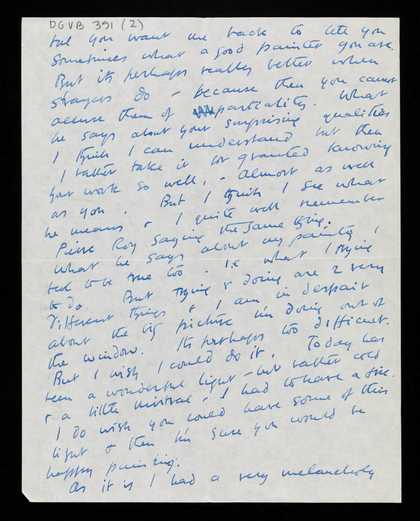 DGVB 391 (2)
but you want me back to tell you
sometimes what a good painter you are.
But its perhaps really better when
strangers do - because then you cannot
accuse them of partiality. What
he says about your surprising qualities
I think I can understand but then
I rather take it for granted knowing
your work so well, - almost as well
as you. But I think I see what
he means & I quite well remember
Pierre Roy saying the same thing.
What he says about my painting I
feel to be true too - i.e. what I trying
to do. But trying & doing are 2 very
different things & I am in despair
about the big picture I'm doing out of
the window. Its perhaps too difficult.
But I wish I could do it. Today has
been a wonderful light - but rather cold
& a little mistral & I had to have a fire.
I do wish you could have some of this
light & then I'm sure you would be
happy painting.
As it is I had a very melancholy